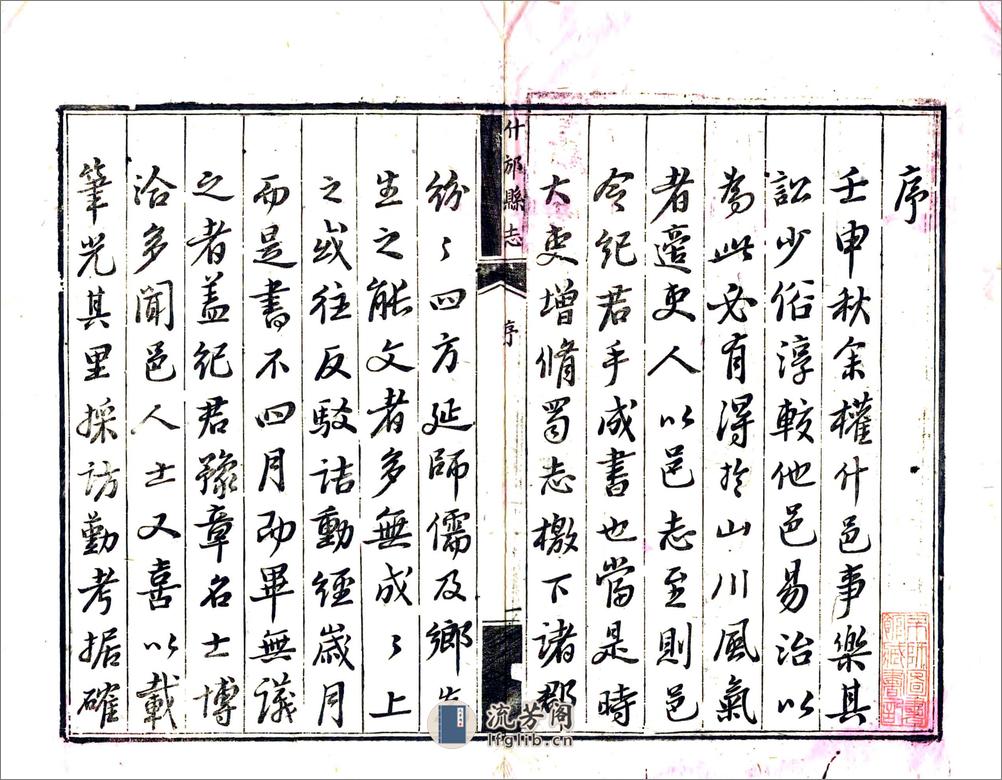 序
壬申秋余權什邑事樂其
訟少俗淳較他邑易治以
為此必有得於山川風氣
者適吏人以邑志至則邑
令紀君手成書也當是時
大吏增脩蜀志檄下諸郡
什邡縣志
序
一
紛〻四方延師儒及鄉先
生之能文者多無成〻上
之或往反駁詰動經歲月
而是書不四月而畢無議
之者盖紀君豫章名士博
洽多聞邑人士又喜以載
筆光其里採訪勤考據確
流芳阁
lfglib.cn